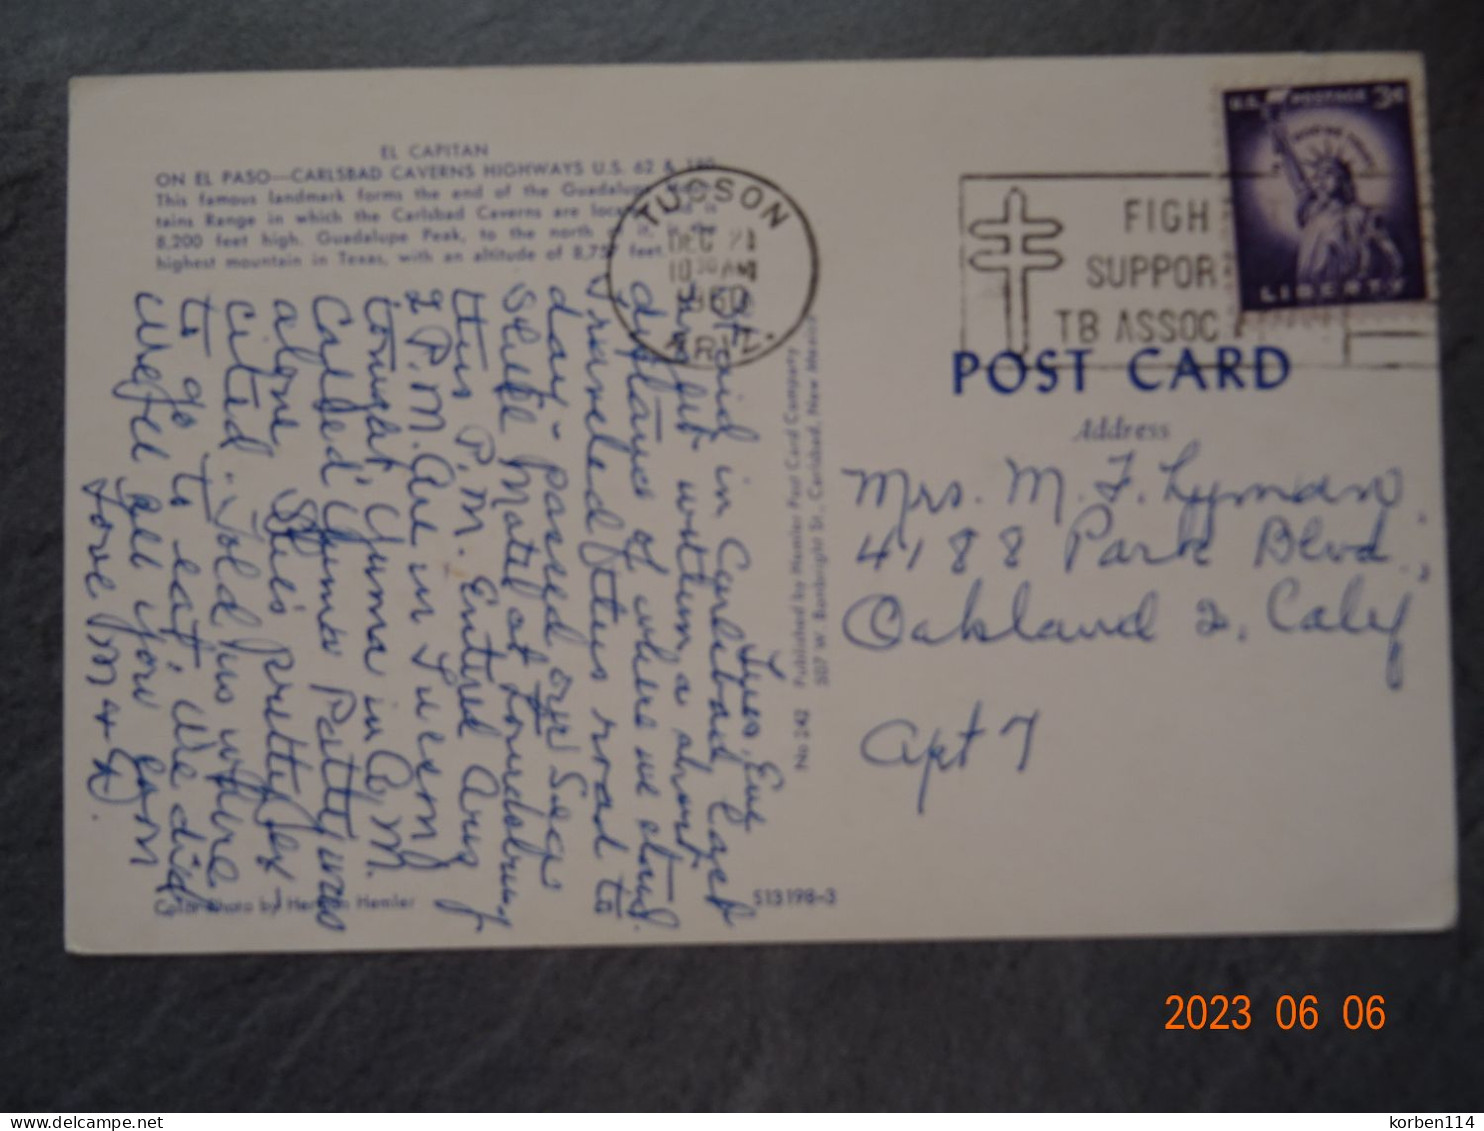 EL CAPITAN
ON EL PASO—CARLSBAD CAVERNS HIGHWAYS U.S. 62 & 180
This famous landmark forms the end of the Guadalupe
tains Range in which the Carlsbad Caverns are located and is
8,200 feet high. Guadalupe Peak, to the north of it, is the
highest mountain in Texas, with an altitude of 8,757 feet.
TUCSON
DEC 21
10 30 AM
1960
ARIZ.
FIGH
SUPPOR
TB ASSOC
U.S. POSTAGE 3¢
IN GOD WE TRUST
LIBERTY
POST CARD
Address
Mrs. M. F. Lyman
4188 Park Blvd.,
Oakland 2, Calif
Apt 7
Tues. Eve
Staid in Carlsbad last
night within a short
displays of where we staid.
Traveled this road to
day - passed
Motel at Lourdsburg
this P.M. Entered Ariz
2 P.M. Are in Tucson
tonight, Yuma in A.M.
Called Yuma Patty was
alone. She's
cited. Told us where
to go to eat. We did
all you
Love M & D.
Published by Hemler Post Card Company
507 W. Bonbright St., Carlsbad, New Mexico
No 242
Color Photo by Herman Hemler
S13198-3
2023 06 06
korben114